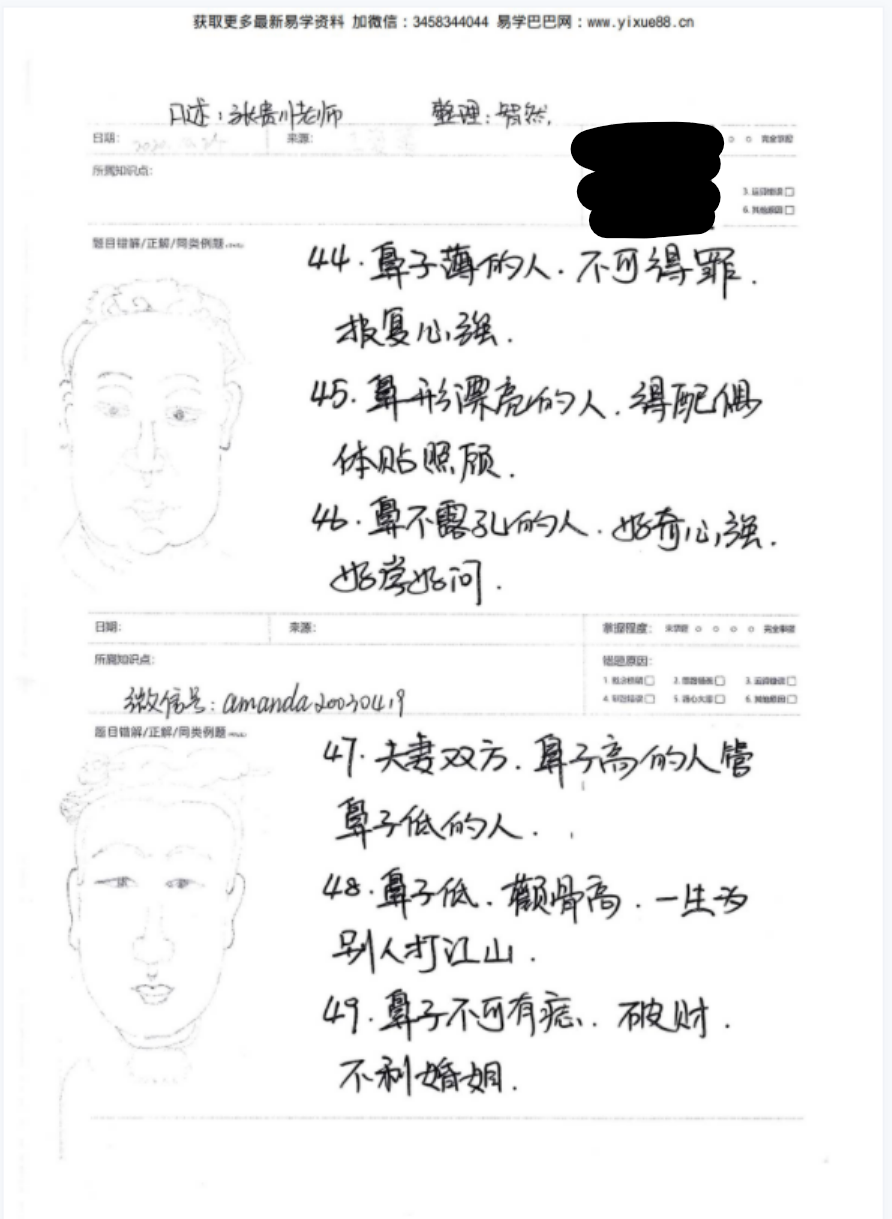 获取更多最新易学资料 加微信：3458344044 易学巴巴网：www.yixue88.cn
口述：张贵川老师 整理：智然.
日期： 来源：
所属知识点：
3.运算错误□
6.其他原因□
题目错解/正解/同类例题
44.鼻子薄的人.不可得罪.
报复心强.
45.鼻形漂亮的人.得配偶
体贴照顾.
46.鼻不露孔的人.好奇心强.
好学好问.
日期： 来源： 掌握程度： 未掌握 ○ ○ ○ ○ 完全掌握
所属知识点： 错题原因：
1.概念模糊□ 2.思路错误□ 3.运算错误□
微信号：amanda20030419
4.审题错误□ 5.粗心大意□ 6.其他原因□
题目错解/正解/同类例题
47.夫妻双方.鼻子高的人管
鼻子低的人.
48.鼻子低.颧骨高.一生为
别人打江山.
49.鼻子不可有痣.破财.
不利婚姻.